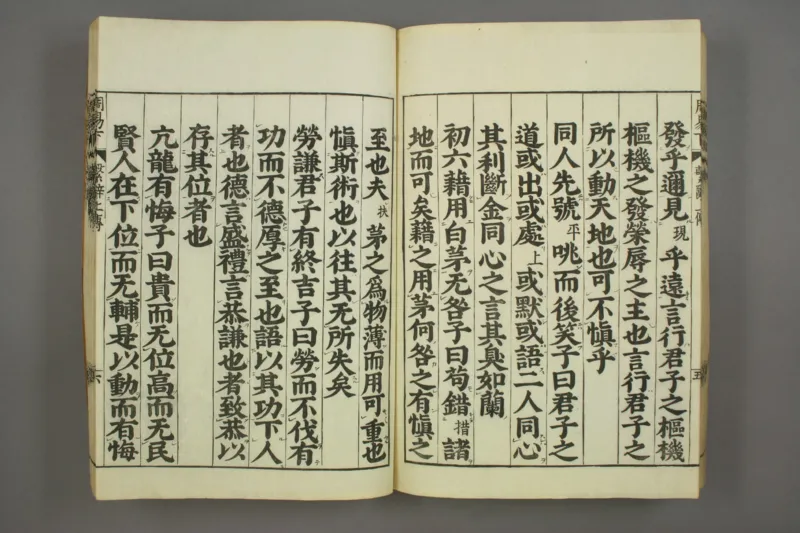 發乎邇見現乎遠言行君子之樞機
樞機之發榮辱之主也言行君子之
所以動天地也可不愼乎
同人先號平咷而後笑子曰君子之
道或出或處上或默或語二人同心
其利斷金同心之言其臭如蘭
初六藉用白茅无咎子曰苟錯措諸
地而可矣藉之用茅何咎之有愼之
五
至也夫扶茅之爲物薄而用可重也
愼斯術也以往其无所失矣
勞謙君子有終吉子曰勞而不伐有
功而不德厚之至也語以其功下人
者也德言盛禮言恭謙也者致恭以
存其位者也
亢龍有悔子曰貴而无位高而无民
賢人在下位而无輔是以動而有悔
周易下 繫辭上傳 六